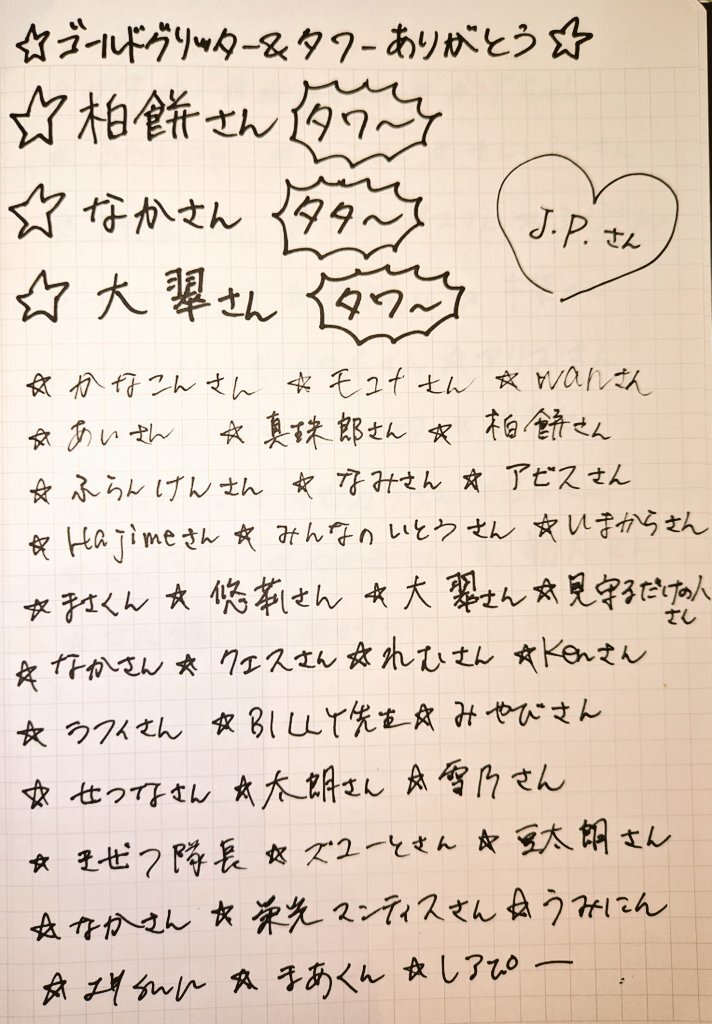 ☆ゴールドグリッター&タワーありがとう☆
☆柏餅さん タワ〜
☆なかさん タタ〜
J.P.さん
☆大翠さん タワ〜
☆かなこんさん ☆モユナさん ☆wanさん
☆あいさん ☆真珠郎さん ☆柏餅さん
☆ふらんけんさん ☆なみさん ☆アビスさん
☆Hajimeさん☆みんなのいとうさん ☆いまからさん
☆まさくん ☆悠莉さん ☆大翠さん☆見守るだけの人さん
☆なかさん ☆クエスさん☆れむさん ☆Kenさん
☆ラフィさん ☆BILLY先生☆みやびさん
☆せつなさん ☆太朗さん ☆雪乃さん
☆きぜつ隊長 ☆ズユーとさん ☆豆太朗さん
☆なかさん ☆栄光マンティスさん☆うみにん
☆ ☆まあくん ☆しアぴー